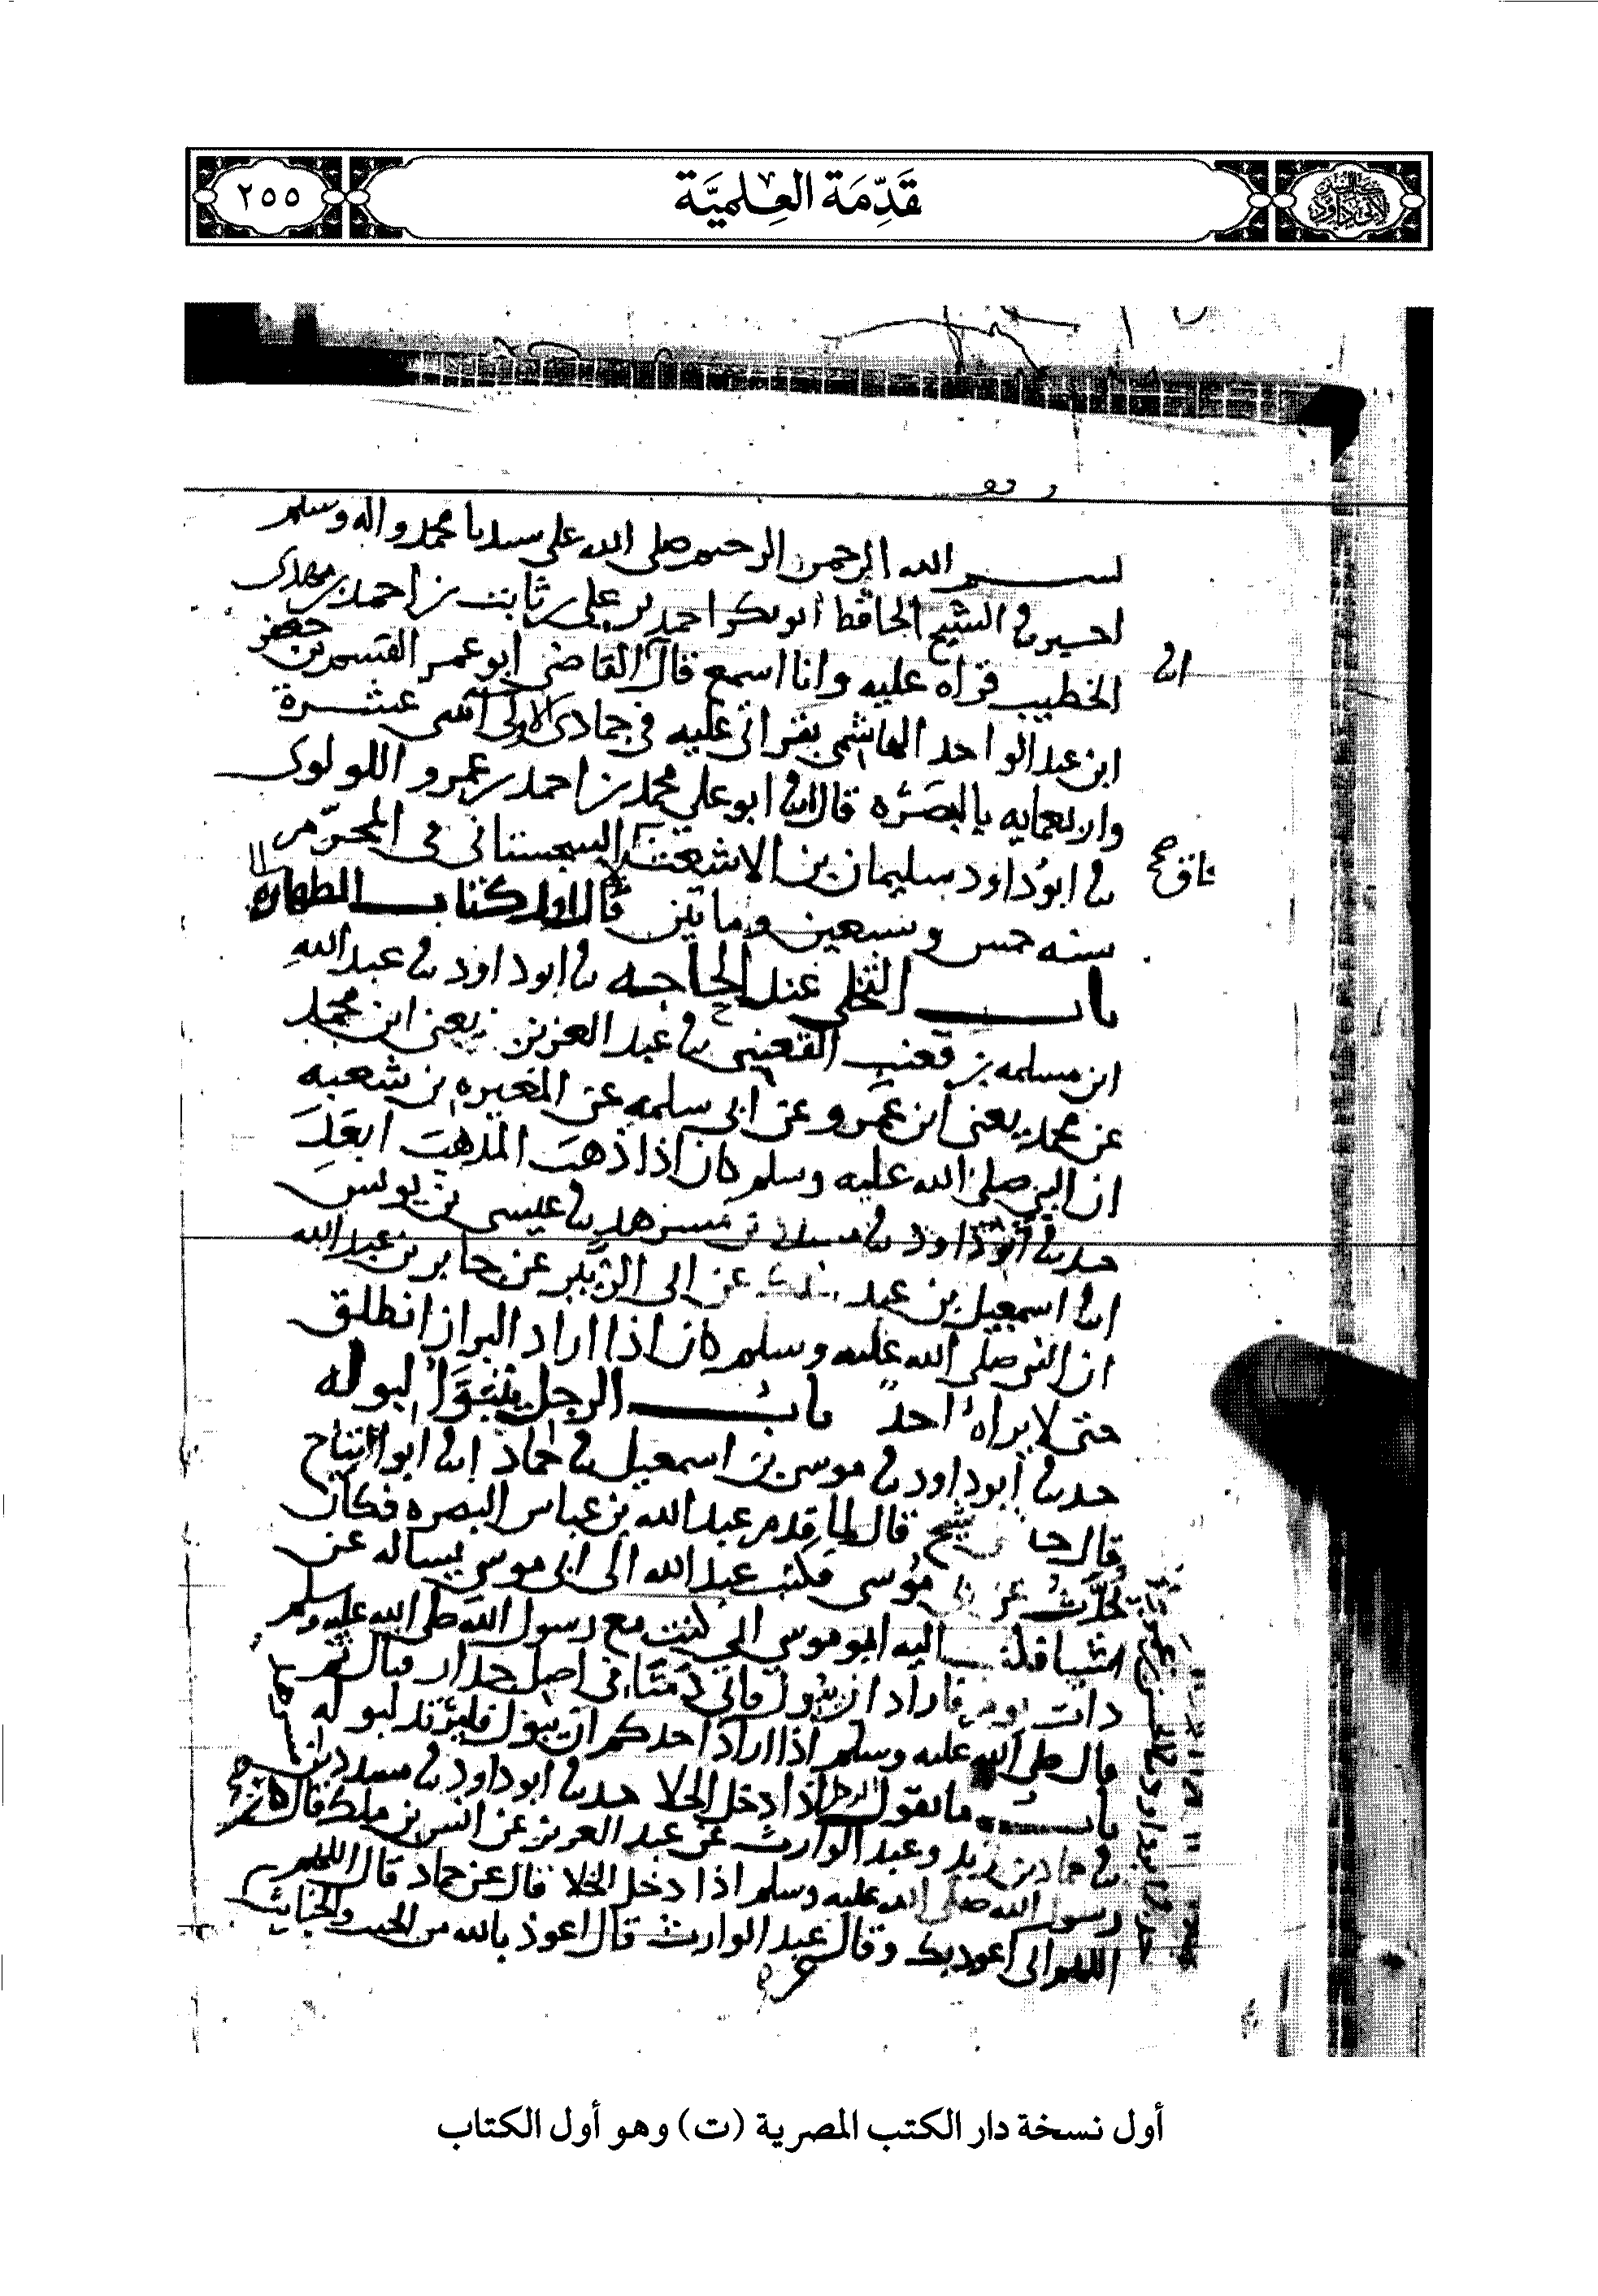 ٢٥٥
قَدِّمَة العِلميَّة
بسم الله الرحمن الرحيم صلى الله على سيدنا محمد واله وسلم
الشيخ الحافظ ابو بكر احمد بن علي بن ثابت بن احمد بن مهدى
الخطيب قراه عليه وانا اسمع قال القاضى ابو عمر القسم بن جعفر
ابن عبد الواحد الهاشمي بقراتى عليه فى جمادى الاولى عشرة
واربعمايه بالبصره قال ابو على محمد بن احمد بن عمرو اللولوى
ابو داود سليمان بن الاشعث السجستانى فى المحرم
سنه خمس وسبعين وماتين قال اول كتاب الطهاره
باب التخلى عند الحاجه ابو داود عبد الله
ابن مسلمه بن قعنب القعنبى عبد العزيز يعنى ابن محمد
عن محمد يعنى ابن عمرو عن ابى سلمه عن المغيره بن شعبه
ان النبى صلى الله عليه وسلم كان اذا ذهب المذهب ابعد
ابو داود مسدد بن مسرهد عيسى بن يونس
اسمعيل بن عبد عن ابى الزبير عن جابر بن عبد الله
ان النبى صلى الله عليه وسلم كان اذا اراد البراز انطلق
حتى لا يراه احد باب الرجل يتبوا لبوله
ابو داود موسى بن اسمعيل حماد ابو التياح
قال شيخ قال لما قدم عبد الله بن عباس البصره فكان
يحدث عن موسى فكتب عبد الله الى ابى موسى يساله عن
اشيا فكتب اليه ابو موسى انى كنت مع رسول الله صلى الله عليه وسلم
ذات يوم فاراد ان يبول فاتى دمثا فى اصل جدار فبال ثم
قال صلى الله عليه وسلم اذا اراد احدكم ان يبول فليرتد لبوله
باب ما يقول الرجل اذا دخل الخلا ابو داود مسدد بن
حماد بن زيد وعبد الوارث عن عبد العزيز عن انس بن ملك قال كان
رسول الله صلى الله عليه وسلم اذا دخل الخلا قال عن حماد قال اللهم
اللهم انى اعوذ بك وقال عبد الوارث قال اعوذ بالله من الخبث والخبائث
أول نسخة دار الكتب المصرية (ت) وهو أول الكتاب